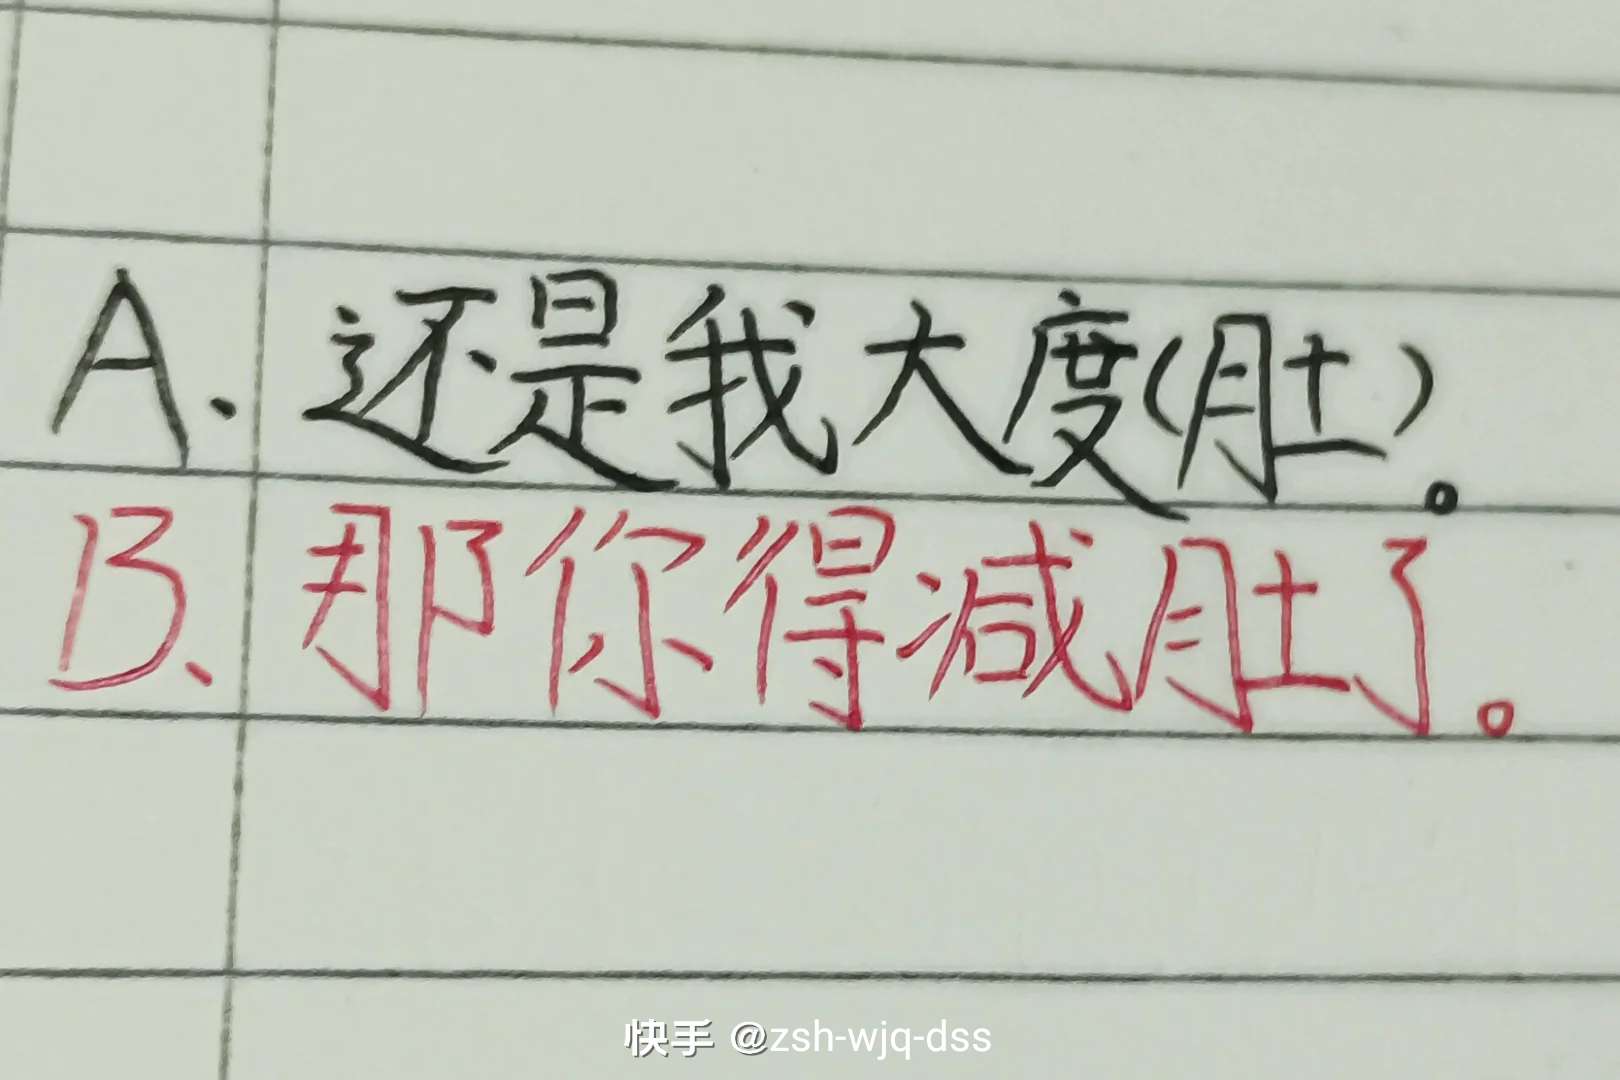 A、还是我大度(肚)。
B、那你得减肚了。
快手 @zsh-wjq-dss